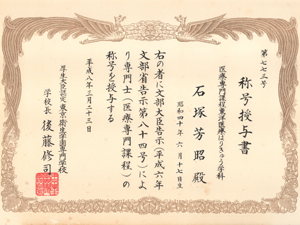 第七七三号
称号授与書
医療専門課程東洋医療はりきゅう学科
石塚芳昭殿
昭和四十年六月十七日生
右の者に文部大臣告示(平成六年
文部省告示第八十四号)によ
り専門士(医療専門課程)の
称号を授与する
平成八年三月二十三日
厚生大臣認定東京衛生学園専門学校
学校長後藤修司